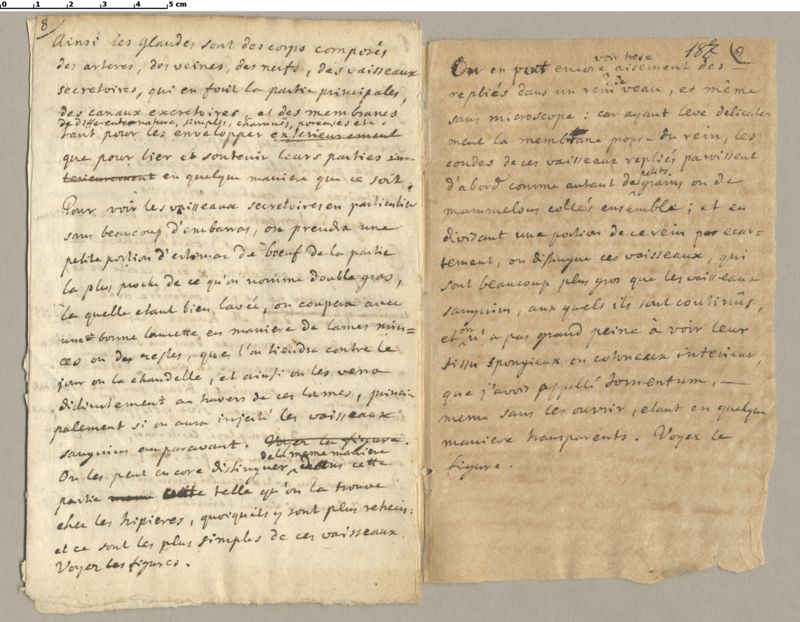 0 1 2 3 4 5 cm
8
Ainsi les Glandes sont des corps composés
des arteres, des veines, des nerfs, des vaisseaux
secretoires, qui en font la partie principales,
des canaux excretoires, et des membranes
de differente nature, simples, charnuës, poreuses etc.
tant pour les envelopper exterieurement
que pour lier et soutenir leurs parties in-
terieurement en quelque maniere que ce soit.
Pour voir les vaisseaux secretoires en particulier
sans beaucoup d'embarras, on prendra une
petite portion d'estomac de bœuf de la partie
la plus proche de ce qu'on nomme double gras,
la quelle etant bien lavée, on coupera avec
une bonne lancette en maniere de lames min-
ces ou de regles, que l'on tiendra contre le
jour ou la chandelle, et ainsi on les verra
distinctement au travers de ces lames, princi-
palement si on aura injecté les vaisseaux
sanguins auparavant. Voyez la figure.
de la meme maniere
On les peut encore distinguer dans cette
partie meme cette telle qu'on la trouve
chez les tripieres, quoiqu'ils y sont plus retrecis;
et ce sont les plus simples de ces vaisseaux.
Voyez les figures.
voir tres
On en peut encore aisement des
repliés dans un rein de veau, et même
sans microscope: car ayant levé delicate-
ment la membrane propre du rein, les
coudes de ces vaisseaux repliés paroissent
petits
d'abord comme autant de grains ou de
mammelons collés ensemble; et en
divisant une portion de ce rein par ecar-
tement, on distingue ces vaisseaux, qui
sont beaucoup plus gros que les vaisseaux
sanguins, aux quels ils sont continûs,
et on n'a pas grand peine à voir leur
tissu spongieux ou cotoneaux interieur,
que j'avois appellé tomentum, —
meme sans les ouvrir, etant en quelque
maniere transparents. Voyez la
figure.